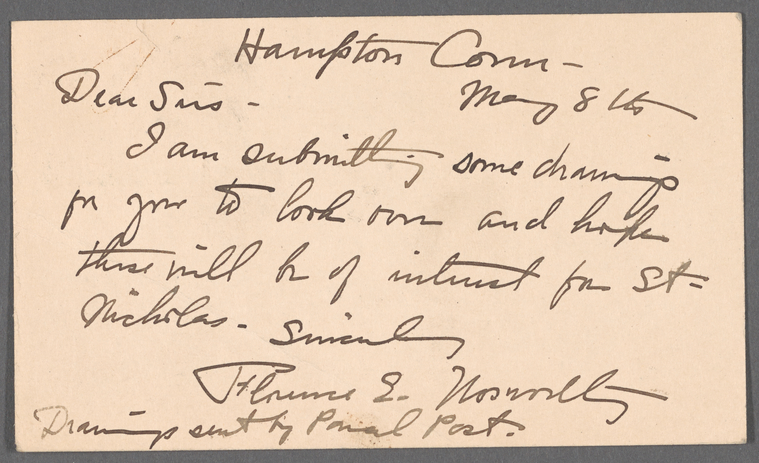 Hampton Conn -
Dear Sirs - May 8th
I am submitting some drawings
for you to look over and hope
these will be of interest for St -
Nicholas - Sincerely
Florence E. Nosworthy
Drawings sent by Parcel Post.